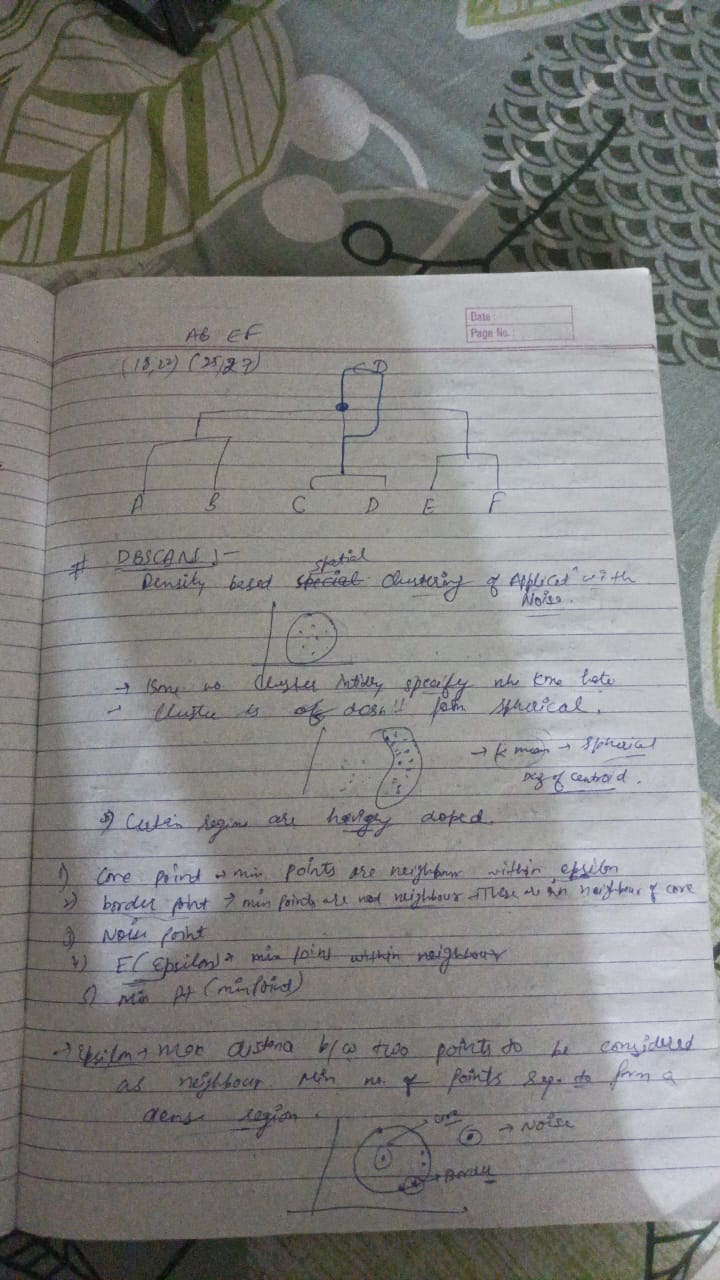 Date :
Page No. :
AB EF
(18,22) (25,27)
CD
A B C D E F
# DBSCAN :-
spatial
Density based special clustering of Applicatⁿ with
Noise.
→ no cluster specify
→ is form spherical.
→ K mean → spherical
of centroid.
Certain regions are doped.
1) Core point → min points are neighbour within epsilon
2) border point → min points are not neighbour neighbour of core
3) Noise point
4) E (Epsilon) → min point within neighbour
5) Min Pt (min point)
→ Epsilon → max distance b/w two points to be considered
as neighbour. Min no. of points req. to form a
dense region.
core
→ Noise
→ Border